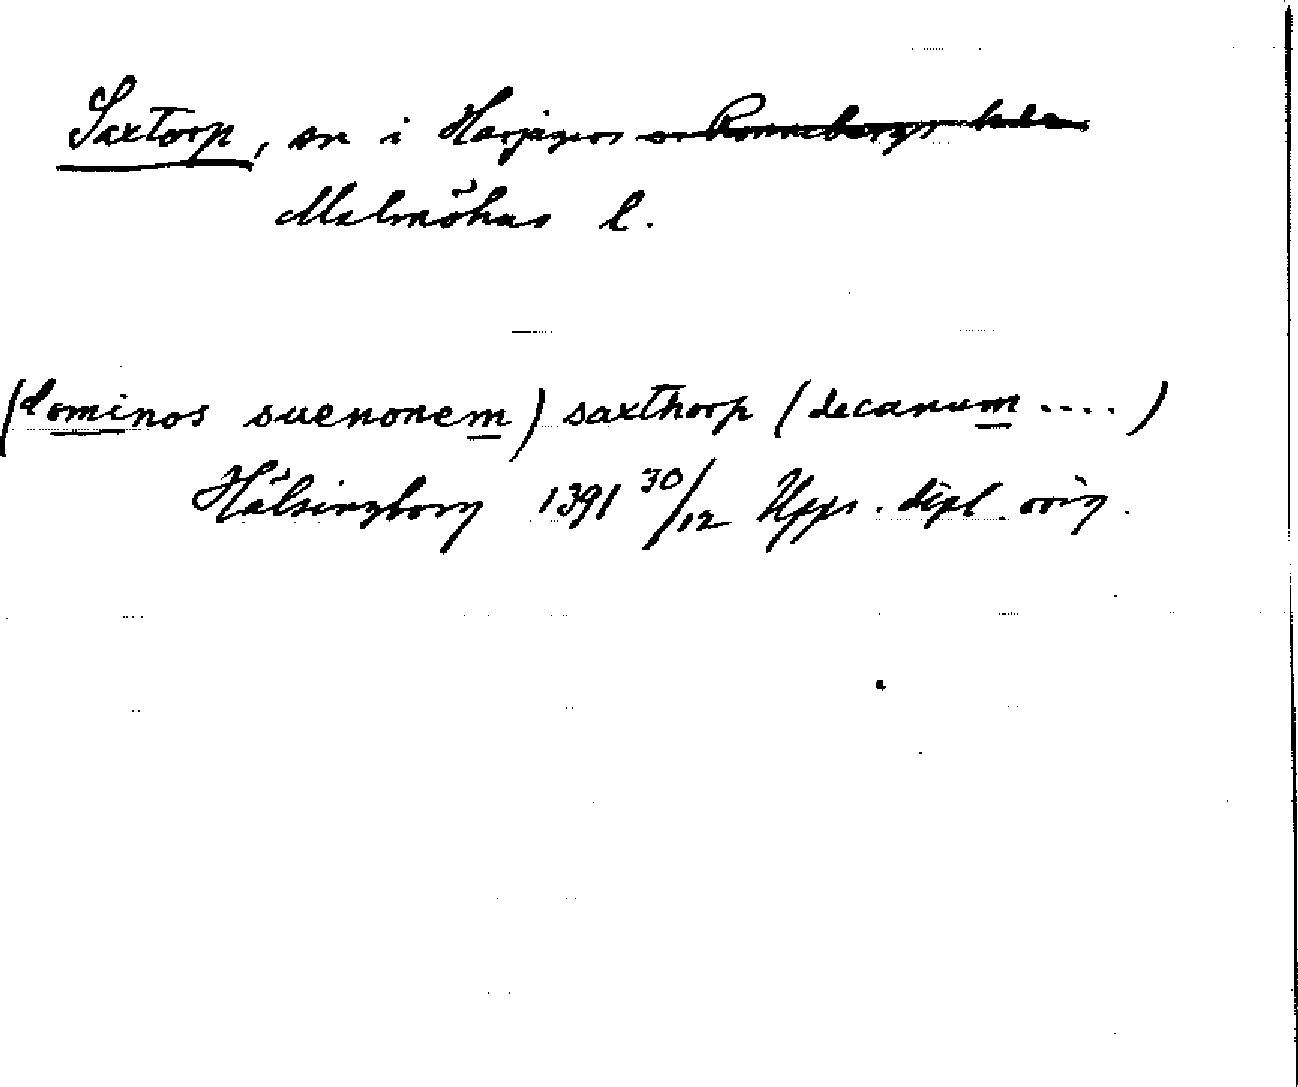 Saxtorp, sn i Harjagers o Rönnebergs hder
Malmöhus l.
(dominos suenonem) saxthorp (decanum ....)
Hälsingborg 1391 30/12 Upps. dipl. orig.